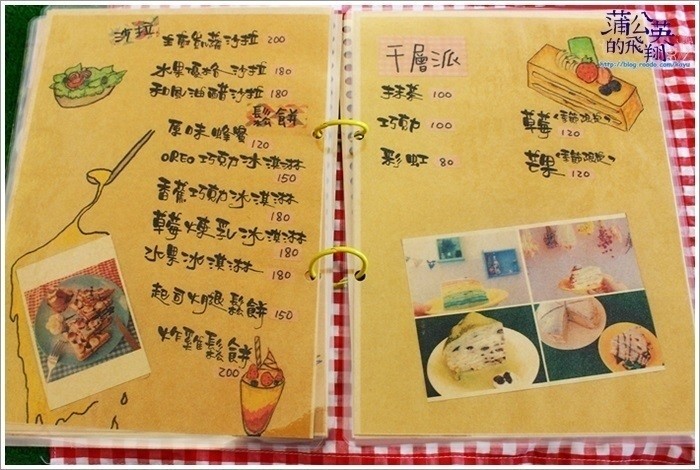 沙拉
主廚凱薩沙拉 200
水果優格沙拉 180
和風油醋沙拉 180
鬆餅
原味蜂蜜 120
OREO巧克力冰淇淋 150
香蕉巧克力冰淇淋 180
草莓煉乳冰淇淋 180
水果冰淇淋 180
起司火腿鬆餅 150
炸雞鬆餅 200
千層派
抹茶 100
巧克力 100
彩虹 80
草莓(季節限定) 120
芒果(季節限定) 120
蒲公英的飛翔